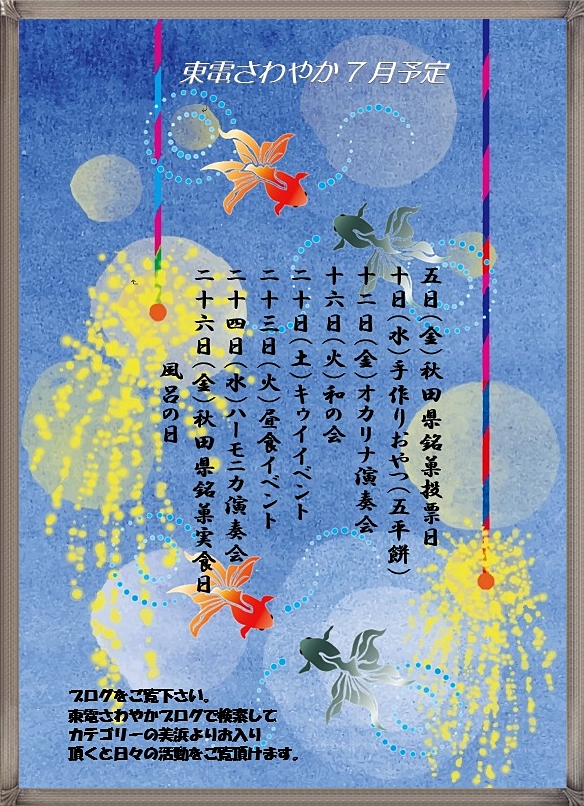 東電さわやか7月予定
五日(金)秋田県銘菓投票日
十日(水)手作りおやつ(五平餅)
十二日(金)オカリナ演奏会
十六日(火)和の会
二十日(土)キゥイイベント
二十三日(火)昼食イベント
二十四日(水)ハーモニカ演奏会
二十六日(金)秋田県銘菓実食日
風呂の日
ブログをご覧下さい。
東電さわやかブログで検索して
カテゴリーの美浜よりお入り
頂くと日々の活動をご覧頂けます。